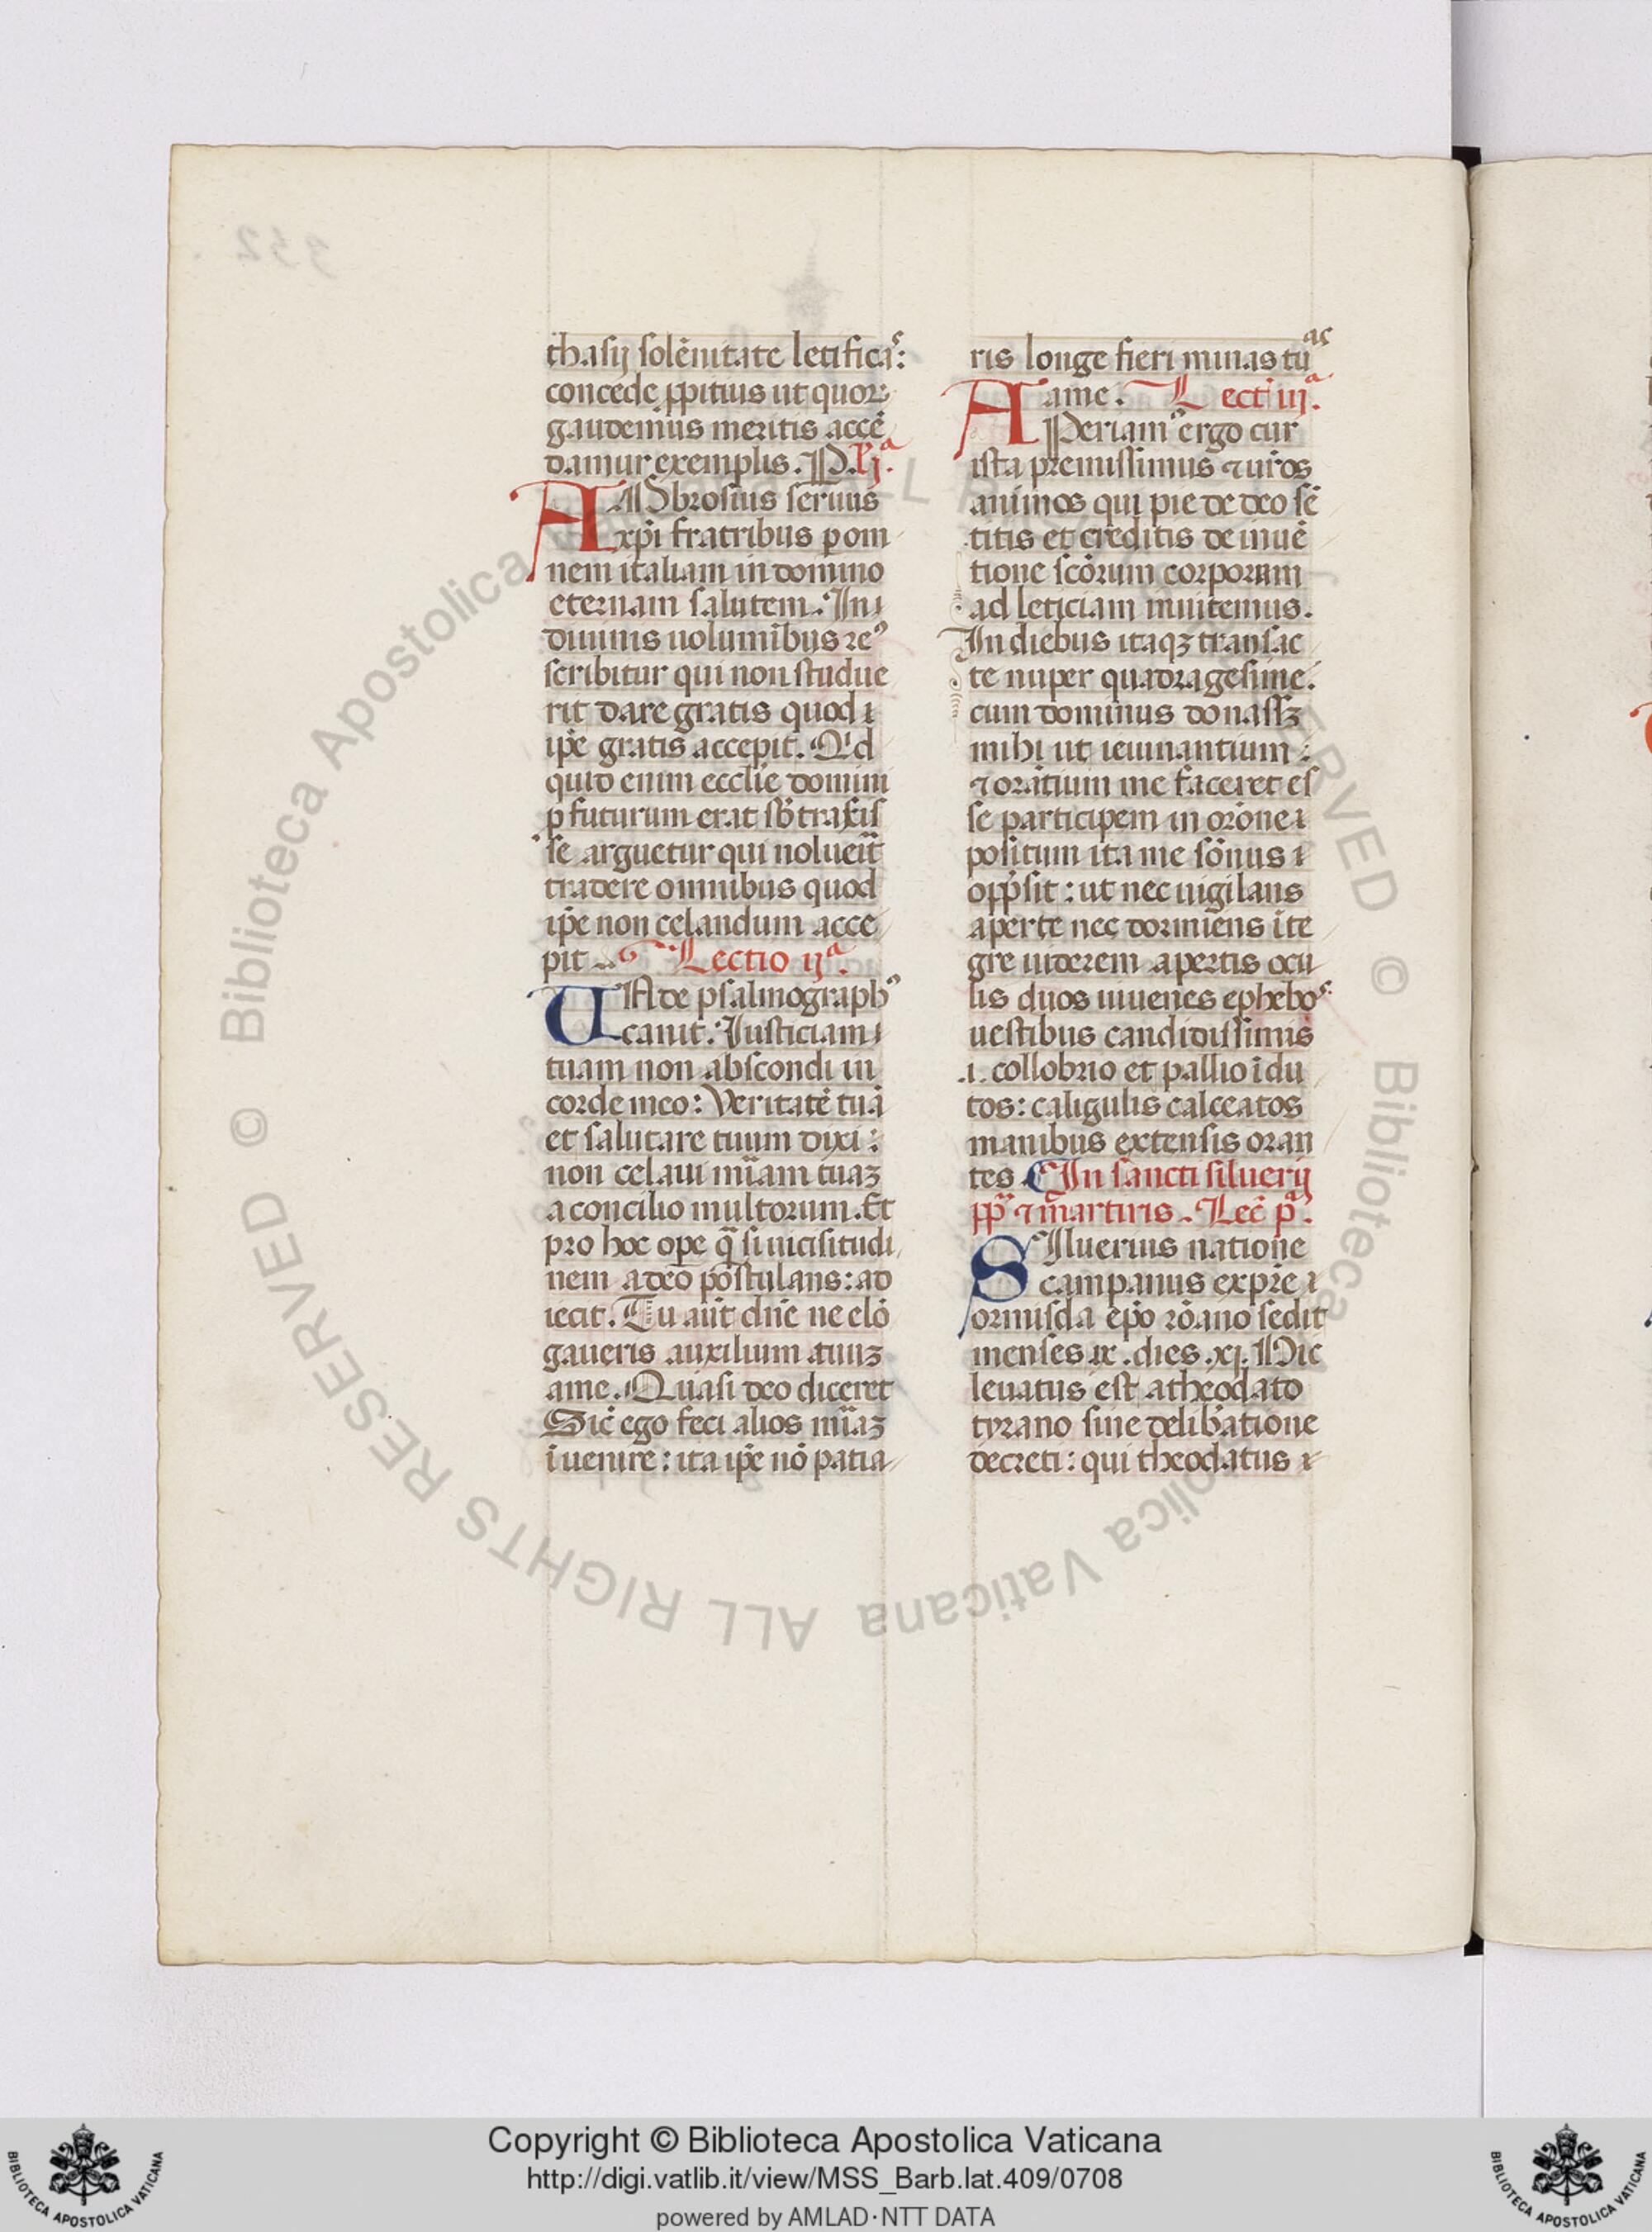 thasij solēnitate letifica˜:
concede ꝓpitius ut quoꝝ
gaudemus meritis accē
damur exemplis. P. lj.ª
AMbrosius seruus
xp̄i fratribus p om
nem italiam in domino
eternam salutem. In
diuinis uoluminibus re
scribitur qui non studue
rit dare gratis quod
ip̄e gratis accepit. Ad
quid enim eccl̄ie domini
ꝓfuturum erat sb̄traxis
se arguetur qui nolueīt
tradere omnibus quod
ip̄e non celandum acce
pit Lectio ijª.
UNde psalmographꝰ
canit. Iusticiam
tuam non abscondi in
corde meo: Veritatē tuā
et salutare tuum dixi:
non celaui mīam tuaꝫ
a concilio multorum. Et
pro hoc ope q̄si uicisitudi
nem a deo postulans: ad
iecit. Tu aūt dn̄e ne elō
gaueris auxilium tuuꝫ
ame. Quasi deo diceret
Sic̄ ego feci alios mīaꝫ
īuenire: ita ip̄e nō patia
ris longe fieri minas tuas
ame. Lect iijª.
APeriamꝰ ergo cur
ista premissimus ⁊ uīos
animos qui pie de deo sē
titis et creditis de inuē
tione scōrum corporum
ad leticiam inuitemus.
In diebus itaqꝫ transac
te nuper quadragesime.
cum dominus donassꝫ
mihi ut ieiunantium
⁊ orātium me faceret es
se participem in orōne
positum ita me sōnus
opp̄sit: ut nec uigilans
aperte nec dormiens īte
gre uiderem apertis ocu
lis duos iuuenes ephebos
uestibus candidissimis
.i. collobrio et pallio īdu
tos: caligulis calceatos
manibus extensis oran
tes In sancti siluerij
pp̄ ⁊ martiris. Lec̄ pª.
SIluerius natione
campanus ex pr̄e
ormisda ep̄o rōano sedit
menses ix. dies .xj. Hic
leuatus est atheodato
tyrano sine delib̄atione
decreti: qui theodatus
Copyright © Biblioteca Apostolica Vaticana
http://digi.vatlib.it/view/MSS_Barb.lat.409/0708
powered by AMLAD·NTT DATA